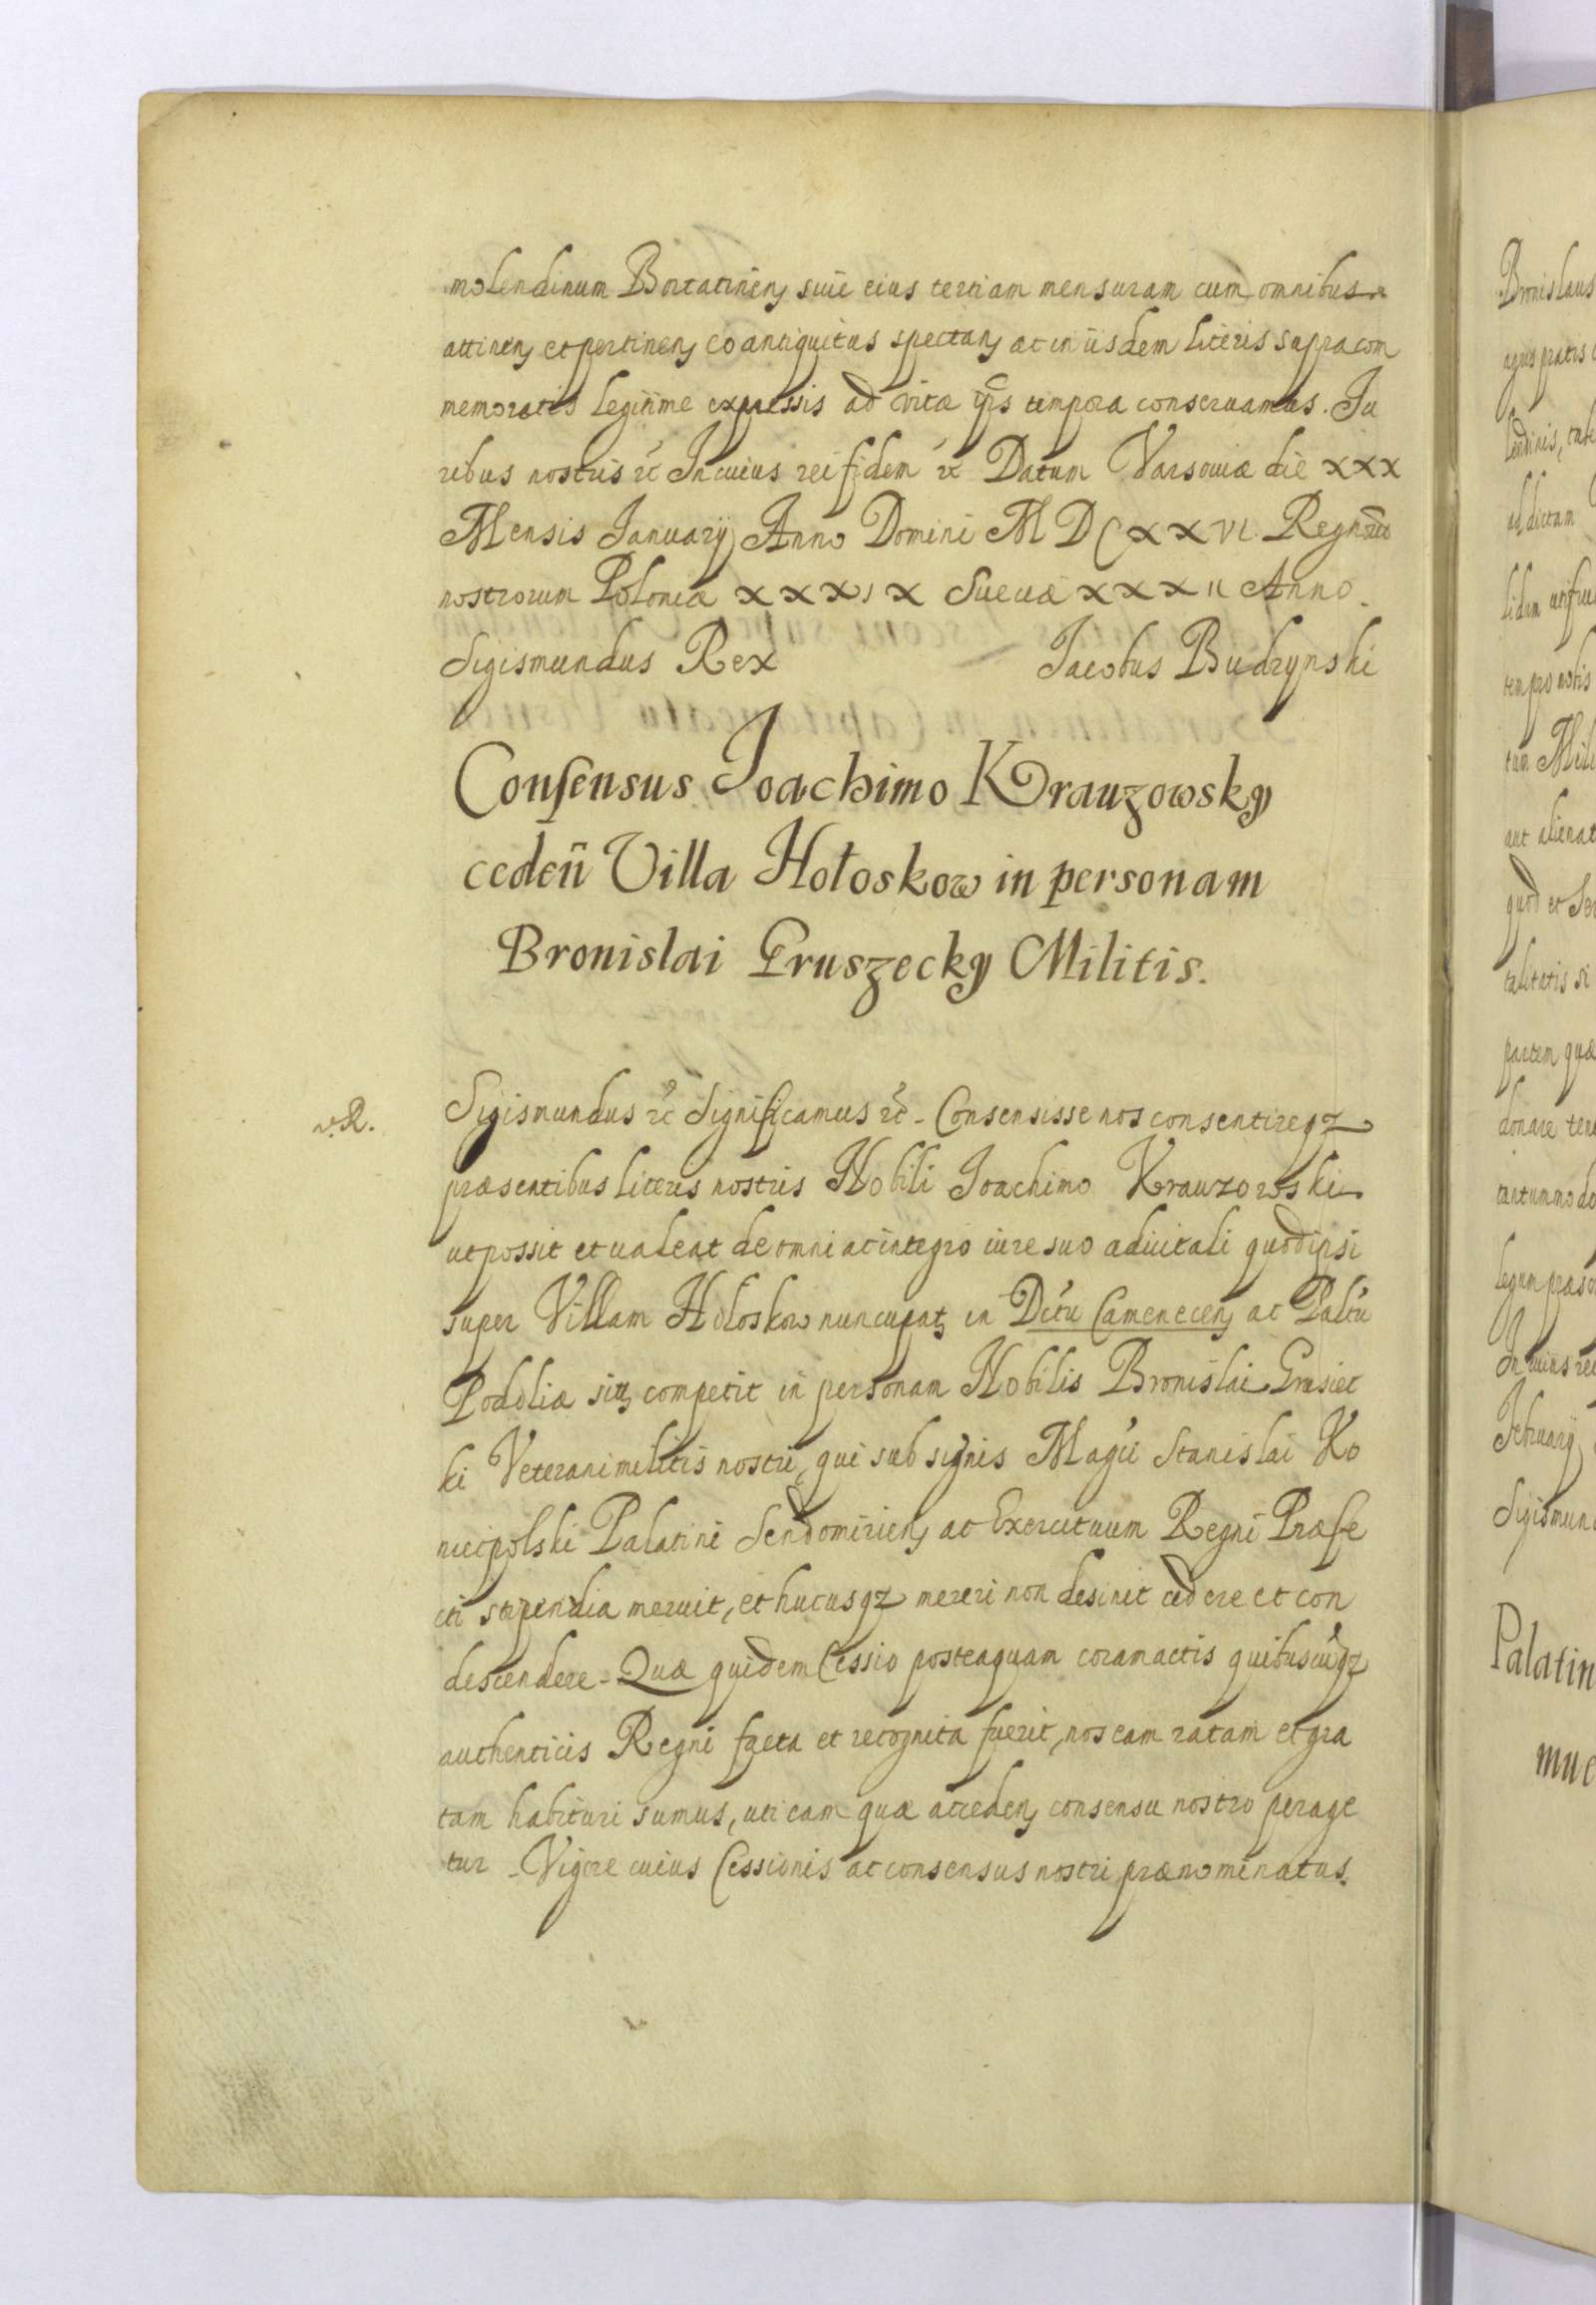 molendinum Bortatinen̄ siue eius tertiam mensuram cum omnibus
attinen̄ et pertinen̄ eo antiquitus spectan̄ ac in iisdem literis supra com
memoratis legitime expressis ad vitæ ip̄s tempora conseruamus. Iu
ribus nostris etc̄ In cuius rei fidem etc̄ Datum Varsouiæ die XXX
Mensis Ianuarij Anno Domini MDCXXVI. Regnor̄
nostrorum Poloniæ XXXIX Sueciæ XXXII Anno.
Sigismundus Rex Iacobus Budzynski
Consensus Joachimo Krauzowsky
ceden̄ Villa Hołoskow in personam
Bronislai Gruszecky Militis.
v.R.
Sigismundus etc̄ Significamus etc̄ - Consensisse nos consentireqz
præsentibus literis nostris Nobili Ioachimo Krauzowski
ut possit et ualeat de omni ac integro iure suo aduitali quod ipsi
super Villam Hołoskow nuncupat̄ in Dc̄tu Camenecen̄ ac Pal̄tu
Podoliæ sit̄ competit in personam Nobilis Bronislai Grusiec
ki Veterani militis nostri, qui sub signis Maḡci Stanislai Ko
niecpolski Palatini Sendomirien̄ ac Exercituum Regni Præfe
cti stipendia meruit, et hucusqz mereri non desinit cedere et con
descendere - Quæ quidem Cessio posteaquam coram actis quibuscūqz
authenticis Regni facta et recognita fuerit, nos eam ratam et gra
tam habituri sumus, uti eam quæ acceden̄ consensu nostro perage
tur - Vigore cuius Cessionis ac consensus nostri prænominatus.
Bronislaus
ad dictam
quod et
Sigismun
Palatin